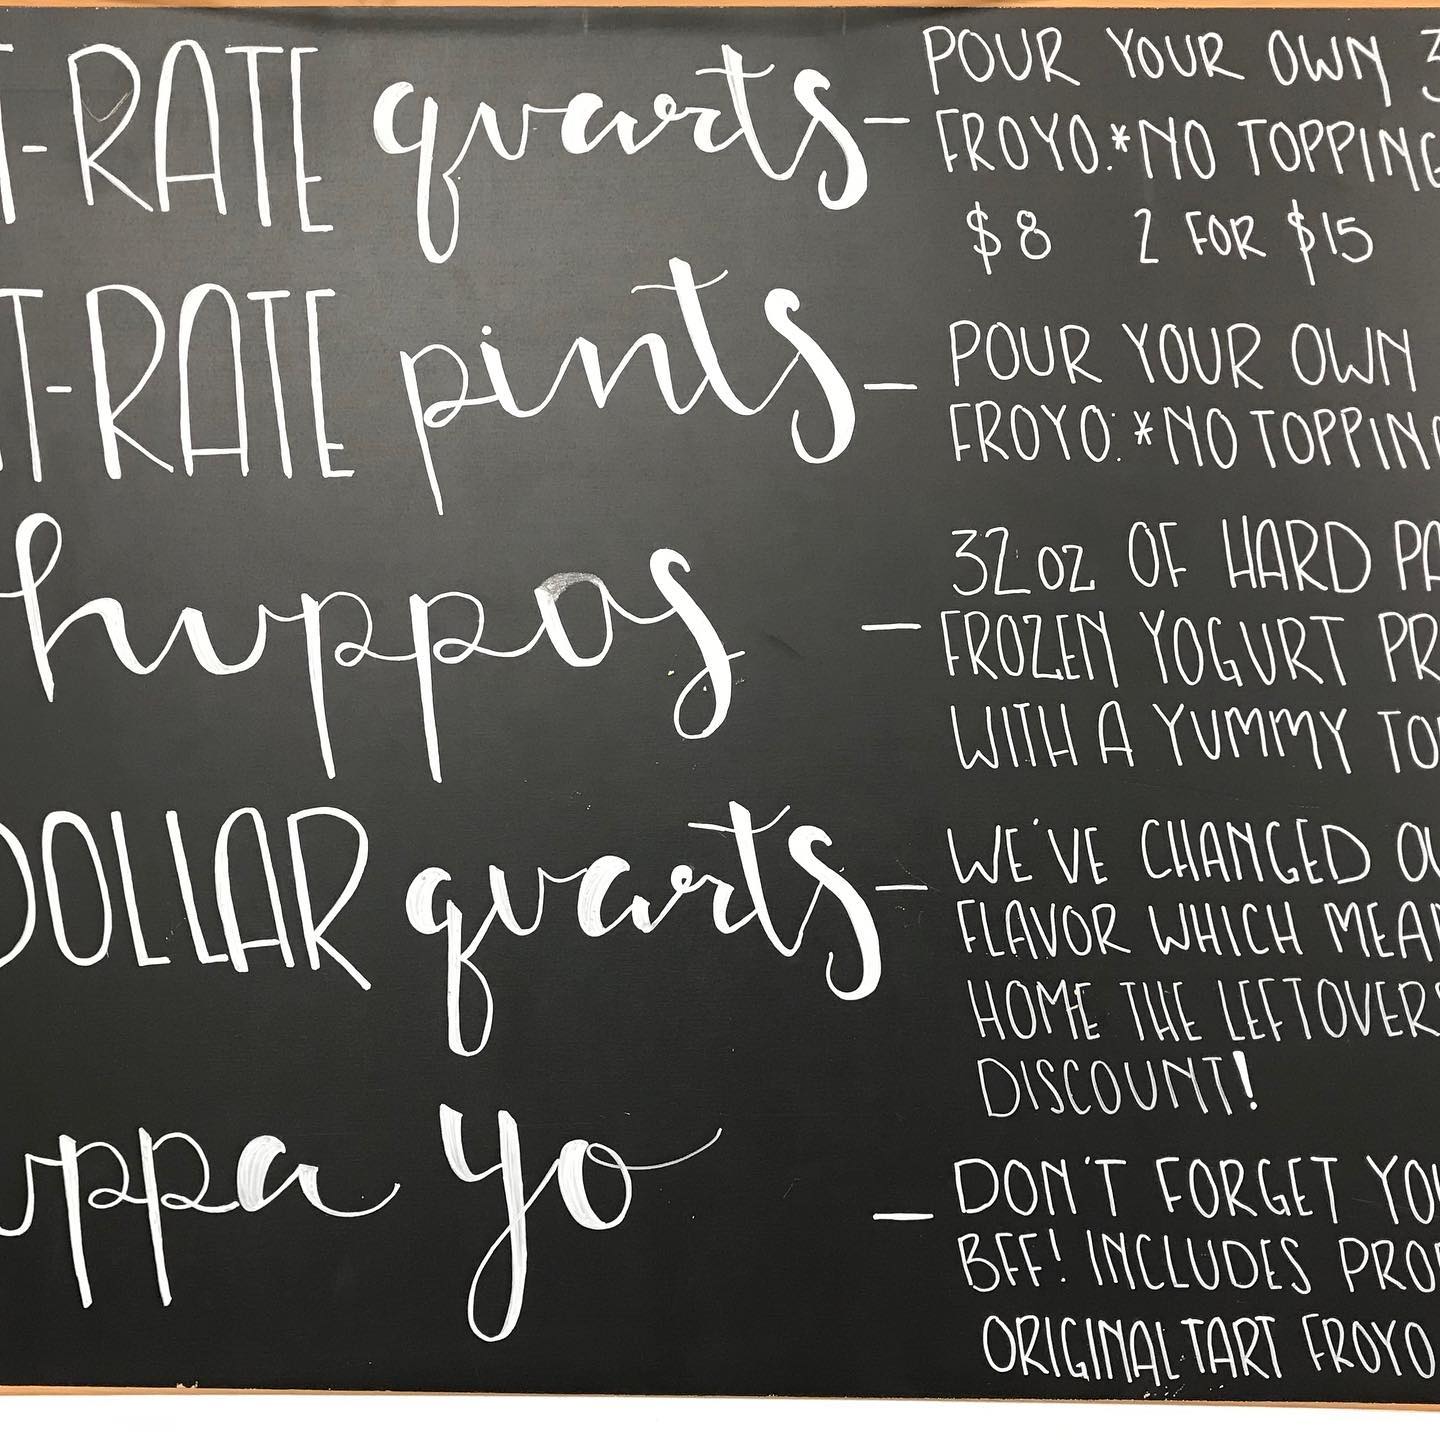 T-RATE quarts - POUR YOUR OWN 3
FROYO.*NO TOPPING
$8 2 FOR $15
T-RATE pints - POUR YOUR OWN
FROYO.*NO TOPPING
huppas - 32 oz OF HARD PA
FROZEN YOGURT PR
WITH A YUMMY TO
DOLLAR quarts - WE'VE CHANGED OU
FLAVOR WHICH MEAN
HOME THE LEFTOVERS
DISCOUNT!
uppa yo - DON'T FORGET YOU
BFF! INCLUDES PRO
ORIGINAL TART FROYO